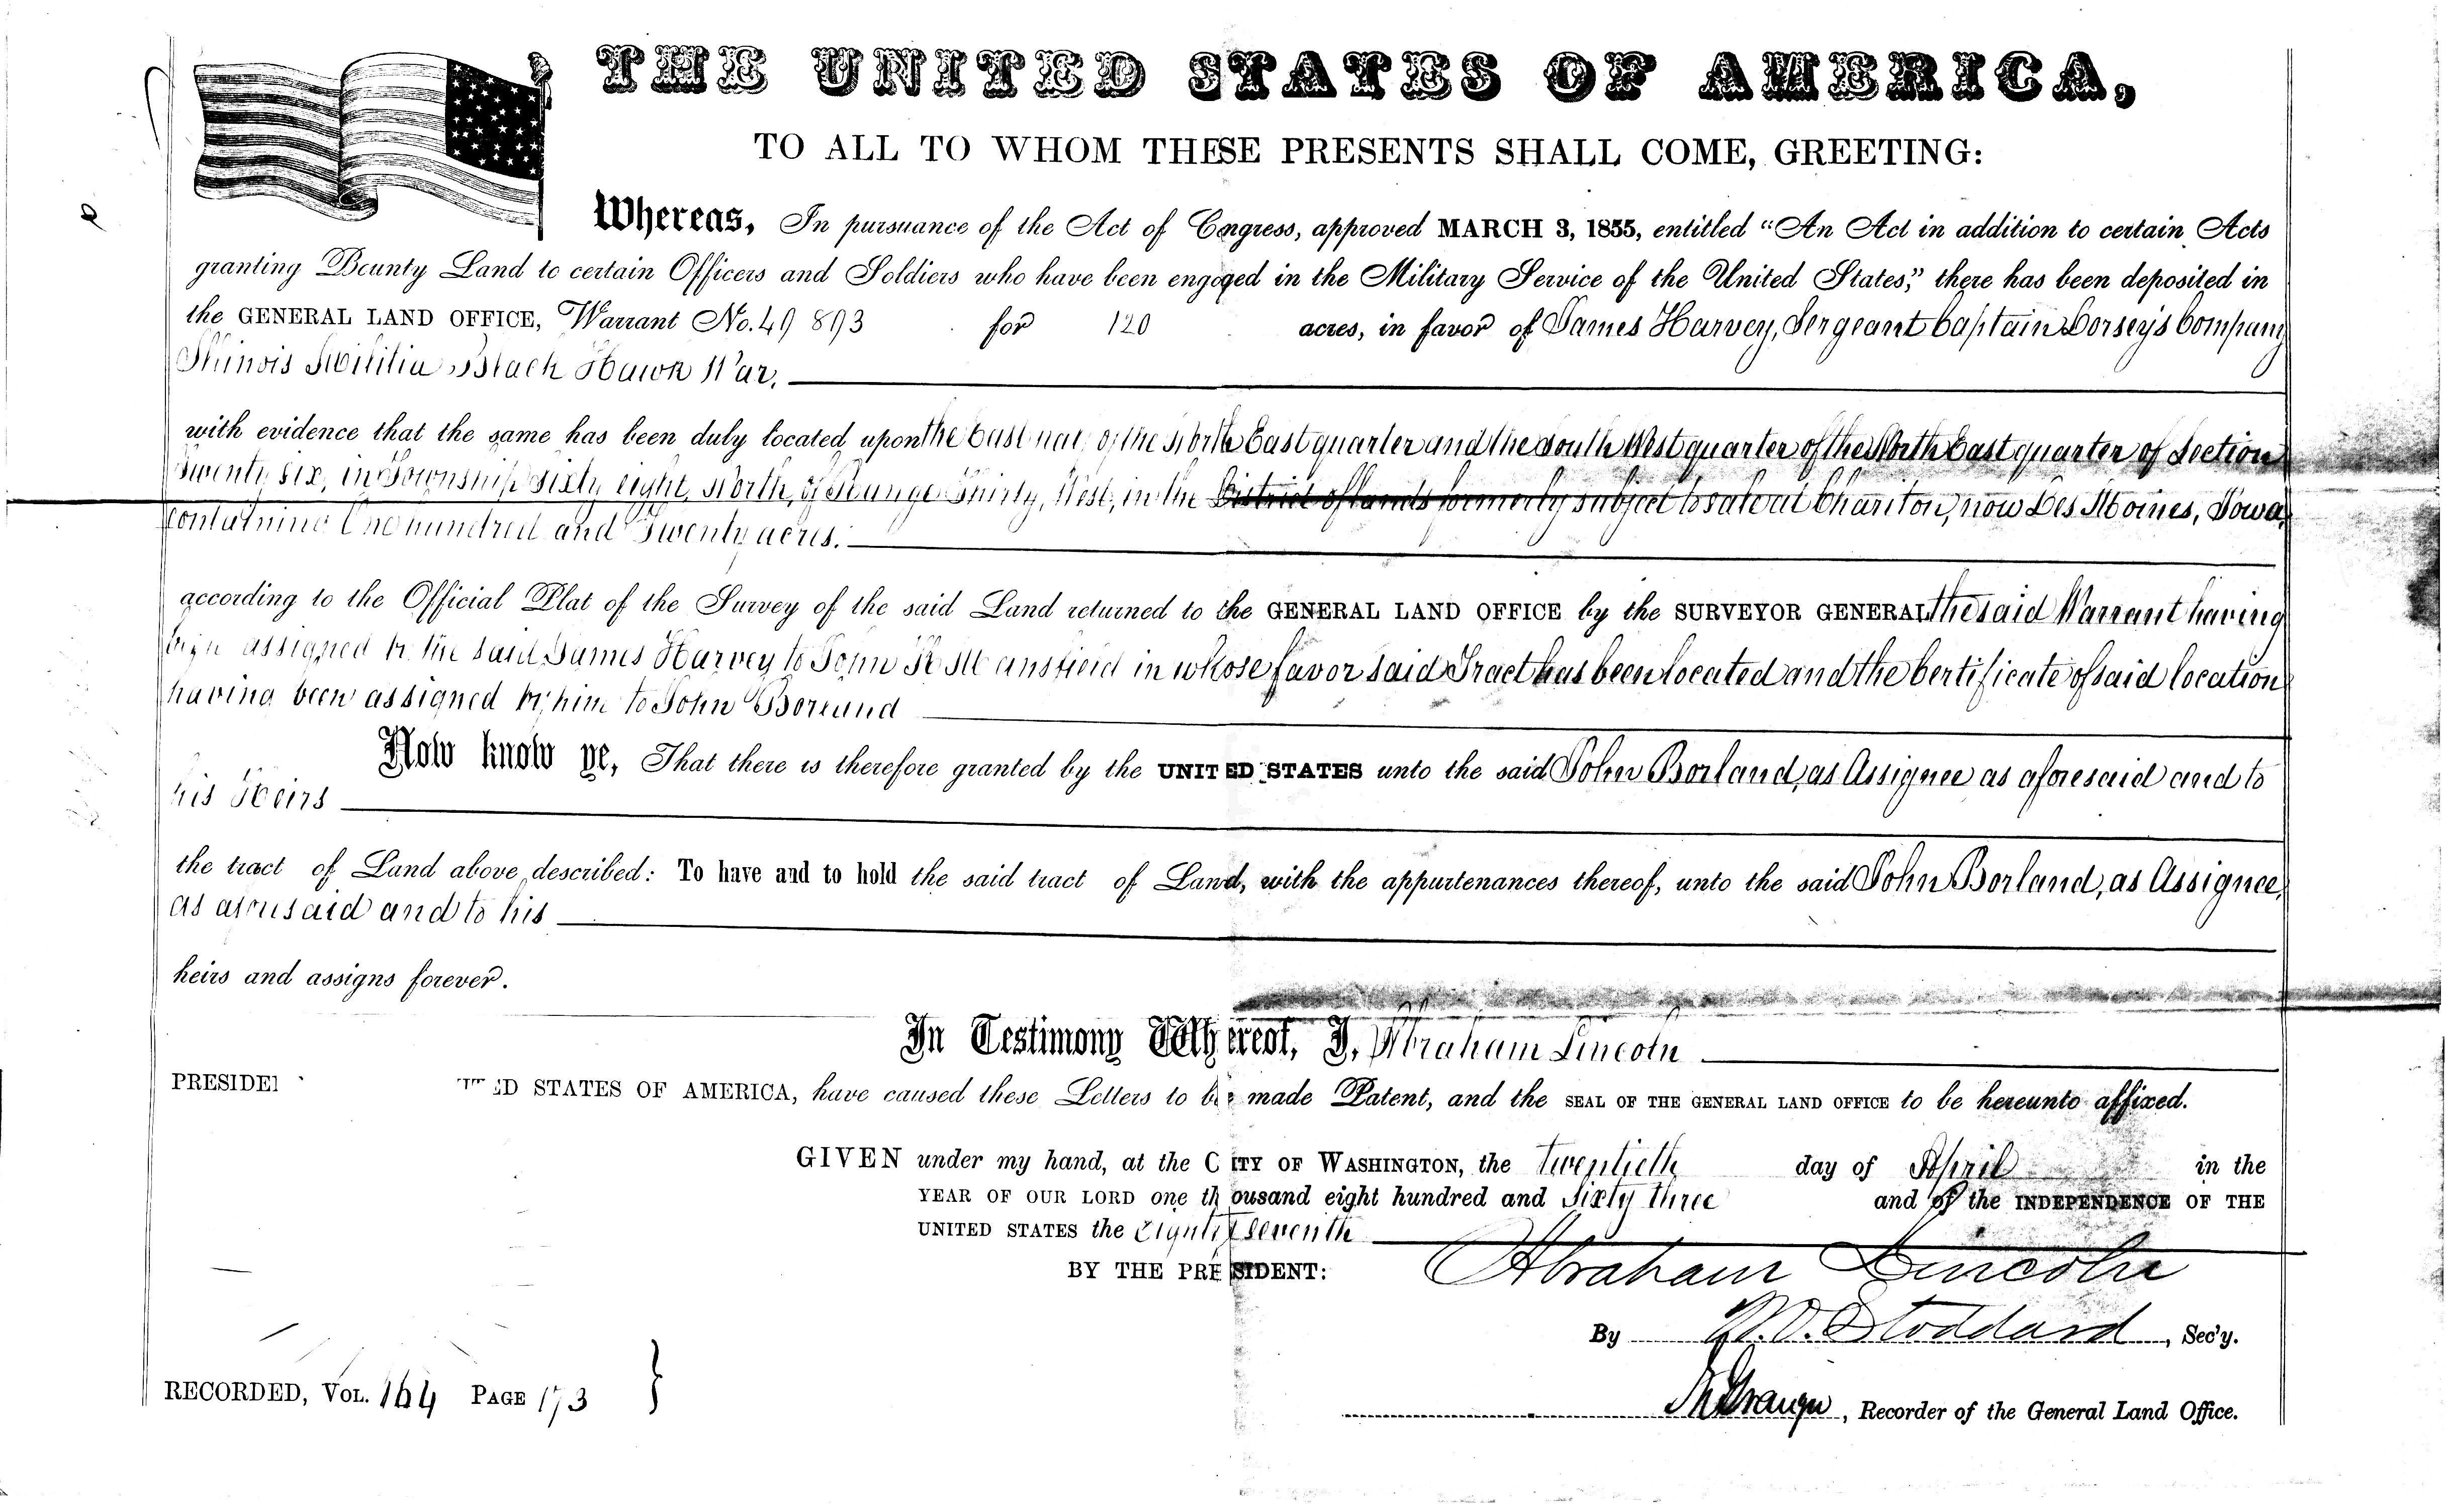 THE UNITED STATES OF AMERICA,
TO ALL TO WHOM THESE PRESENTS SHALL COME, GREETING:
Whereas, In pursuance of the Act of Congress, approved MARCH 3, 1855, entitled "An Act in addition to certain Acts
granting Bounty Land to certain Officers and Soldiers who have been engaged in the Military Service of the United States," there has been deposited in
the GENERAL LAND OFFICE, Warrant No. 49 893 for 120 acres, in favor of James Harvey, Sergeant Captain Dorsey's Company
Illinois Militia Black Hawk War.
with evidence that the same has been duly located upon the East half of the North East quarter and the South West quarter of the North East quarter of Section
Twenty six, in Township sixty eight, North, of Range Thirty, West, in the District of lands formerly subject to sale at Chariton, now Des Moines, Iowa,
containing One hundred and Twenty acres.
according to the Official Plat of the Survey of the said Land returned to the GENERAL LAND OFFICE by the SURVEYOR GENERAL the said Warrant having
been assigned by the said James Harvey to John R Mansfield in whose favor said Tract has been located and the Certificate of said location
having been assigned by him to John Borland
Now know ye, That there is therefore granted by the UNITED STATES unto the said John Borland, as Assignee as aforesaid and to
his Heirs
the tract of Land above described: To have and to hold the said tract of Land, with the appurtenances thereof, unto the said John Borland, as Assignee,
as aforesaid and to his
heirs and assigns forever.
In Testimony Whereof, I, Abraham Lincoln
PRESIDE ED STATES OF AMERICA, have caused these Letters to be made Patent, and the SEAL OF THE GENERAL LAND OFFICE to be hereunto affixed.
GIVEN under my hand, at the CITY OF WASHINGTON, the twentieth day of April in the
YEAR OF OUR LORD one thousand eight hundred and Sixty three and of the INDEPENDENCE OF THE
UNITED STATES the Eighty seventh
BY THE PRESIDENT: Abraham Lincoln
By Stoddard, Sec'y.
Granger, Recorder of the General Land Office.
RECORDED, VOL. 164 PAGE 173